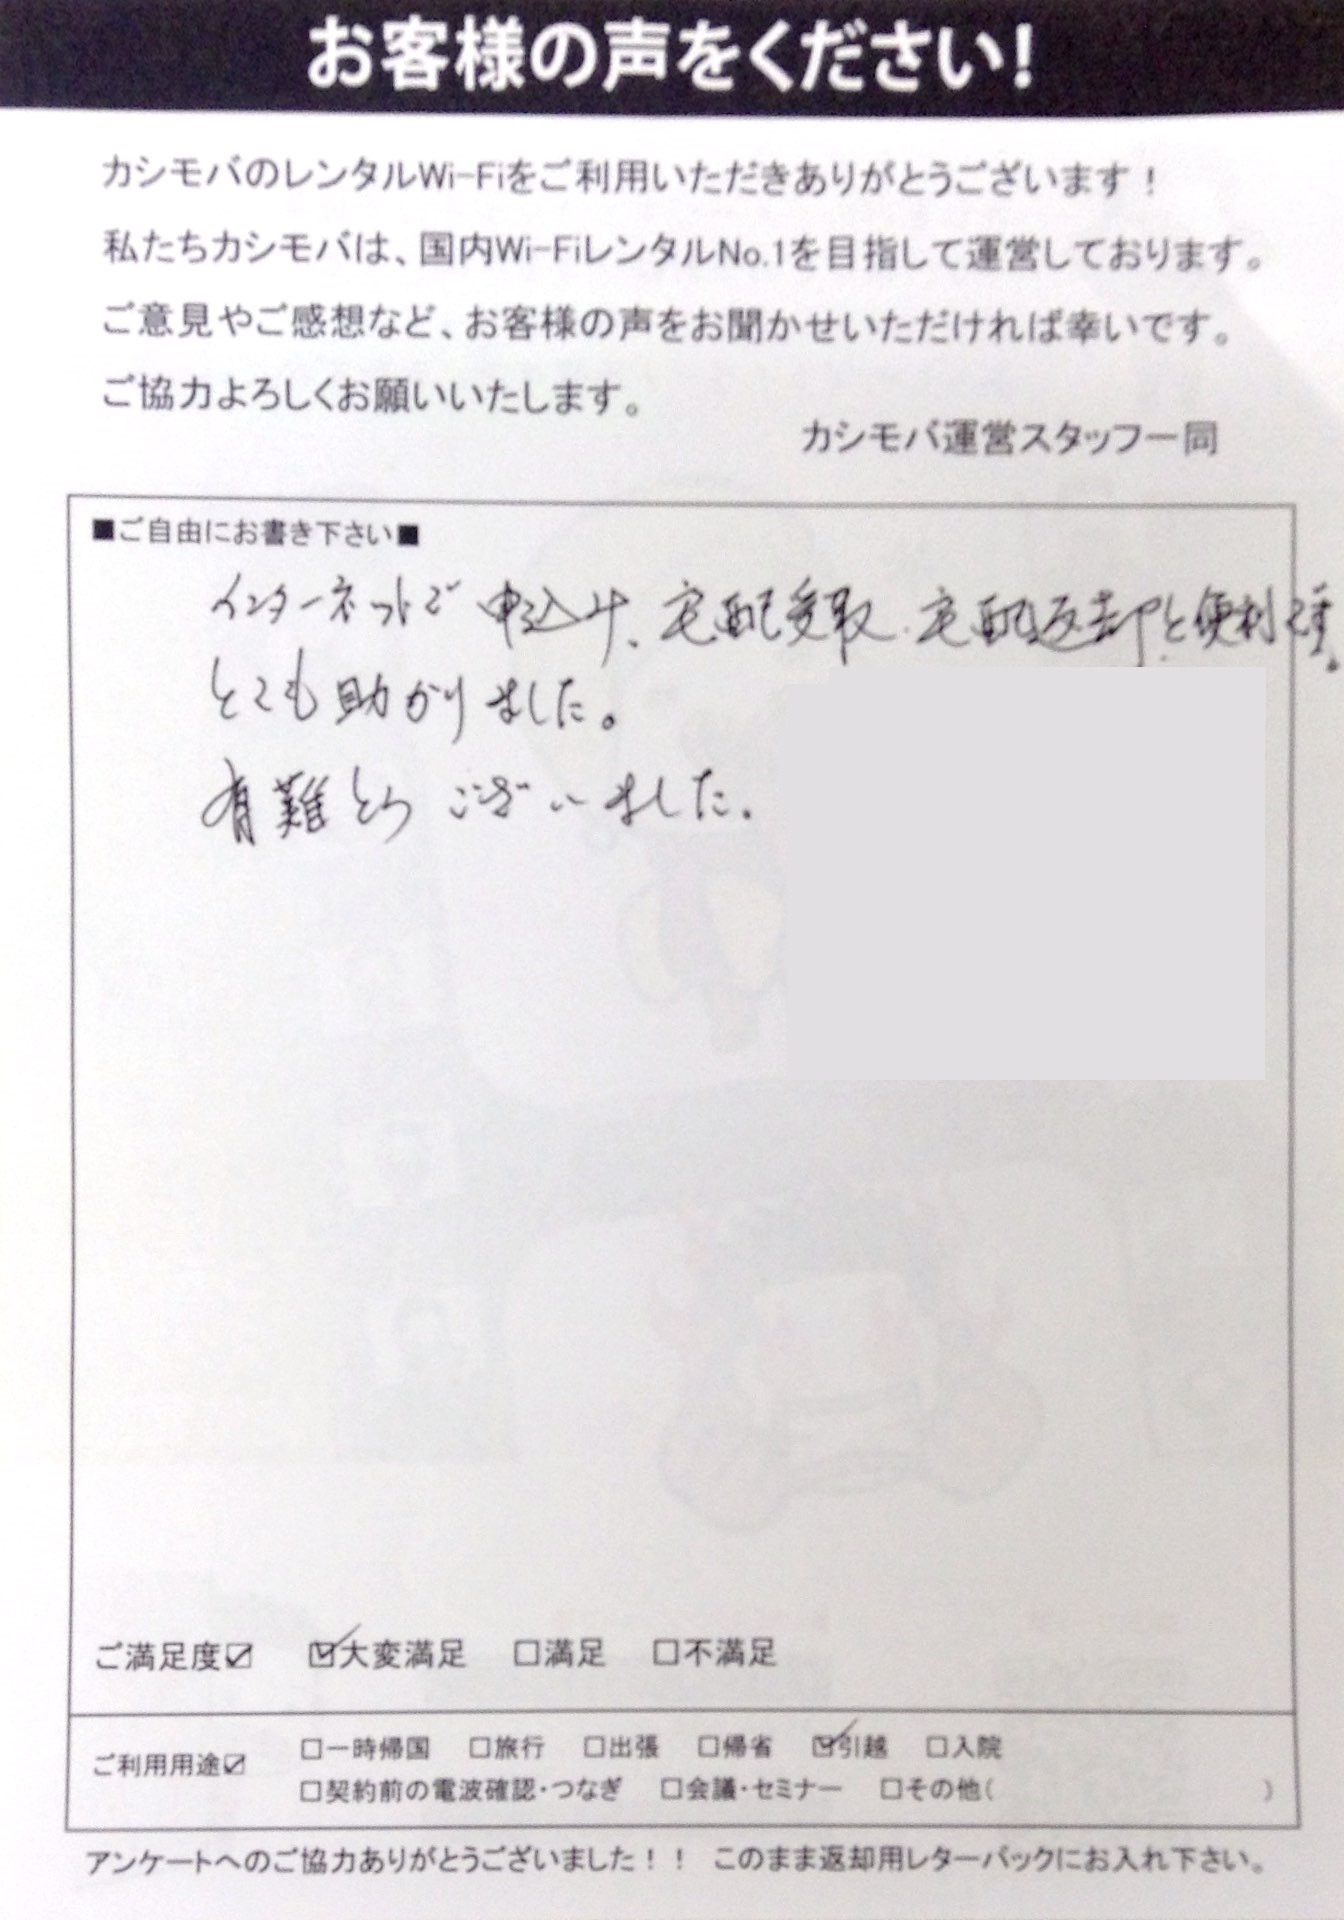 お客様の声をください!
カシモバのレンタルWi-Fiをご利用いただきありがとうございます！
私たちカシモバは、国内Wi-FiレンタルNo.1を目指して運営しております。
ご意見やご感想など、お客様の声をお聞かせいただければ幸いです。
ご協力よろしくお願いいたします。
カシモバ運営スタッフ一同
■ご自由にお書き下さい■
インターネットで申込み、宅配受取、宅配返却と便利
とても助かりました。
有難とうございました。
ご満足度☑ ☑大変満足 □満足 □不満足
ご利用用途☑ □一時帰国 □旅行 □出張 □帰省 ☑引越 □入院
□契約前の電波確認・つなぎ □会議・セミナー □その他( )
アンケートへのご協力ありがとうございました！！ このまま返却用レターパックにお入れ下さい。